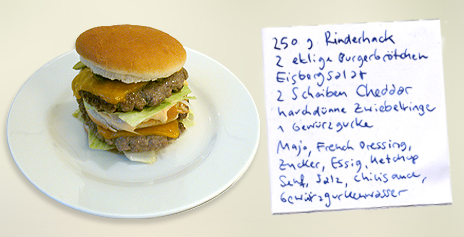 250 g Rinderhack
2 eklige Burgerbrötchen
Eisbergsalat
2 Scheiben Cheddar
hauchdünne Zwiebelringe
1 Gewürzgurke
Majo, French Dressing,
Zucker, Essig, Ketchup
Senf, Salz, Chilisauce,
Gewürzgurkenwasser